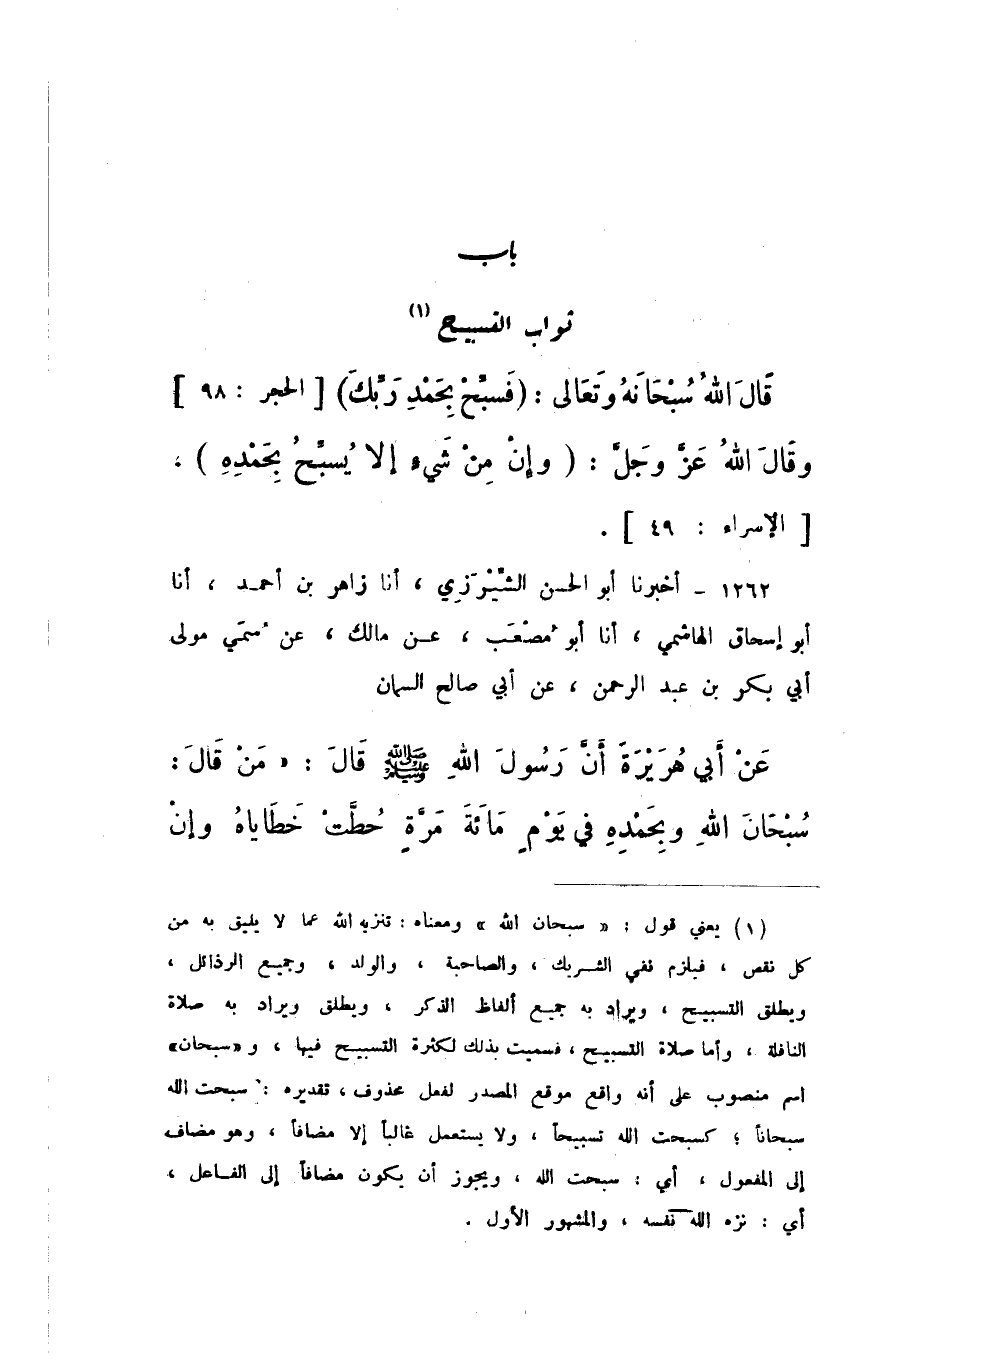 باب
ثواب التسبيح (١)
قَالَ اللهُ سُبْحَانَهُ وَتَعَالى : (فَسبِّحْ بِحَمْدِ رَبِّكَ) [ الحجر : ٩٨ ]
وقَالَ اللهُ عَزَّ وجَلَّ : ( وإنْ مِنْ شَيءٍ إلا يُسبِّحُ بِحَمْدِهِ ) ،
[ الإسراء : ٤٩ ] .
١٢٦٢ – أخبرنا أبو الحسن الشِّيْرَزي ، أنا زاهر بن أحمد ، أنا
أبو إسحاق الهاشمي ، أنا أبو مُصْعَب ، عن مالك ، عن سُمَي مولى
أبي بكر بن عبد الرحمن ، عن أبي صالح السمان
عَنْ أَبي هُرَيْرَةَ أَنَّ رَسُولَ اللهِ ﷺ قَالَ : « مَنْ قَالَ :
سُبْحَانَ اللهِ وبِحَمْدِهِ في يَوْمٍ مَائَةَ مَرَّةٍ حُطَّتْ خَطَاياهُ وإنْ
(١) يعني قول : « سبحان الله » ومعناه : تنزيه الله عما لا يليق به من
كل نقص ، فيلزم نفي الشريك ، والصاحبة ، والولد ، وجميع الرذائل ،
ويطلق التسبيح ، ويراد به جميع ألفاظ الذكر ، ويطلق ويراد به صلاة
النافلة ، وأما صلاة التسبيح ، فسميت بذلك لكثرة التسبيح فيها ، و «سبحان»
اسم منصوب على أنه واقع موقع المصدر لفعل محذوف ، تقديره : سبحت الله
سبحاناً ؛ كسبحت الله تسبيحاً ، ولا يستعمل غالباً إلا مضافاً ، وهو مضاف
إلى المفعول ، أي : سبحت الله ، ويجوز أن يكون مضافاً إلى الفاعل ،
أي : نزه الله نفسه ، والمشهور الأول .